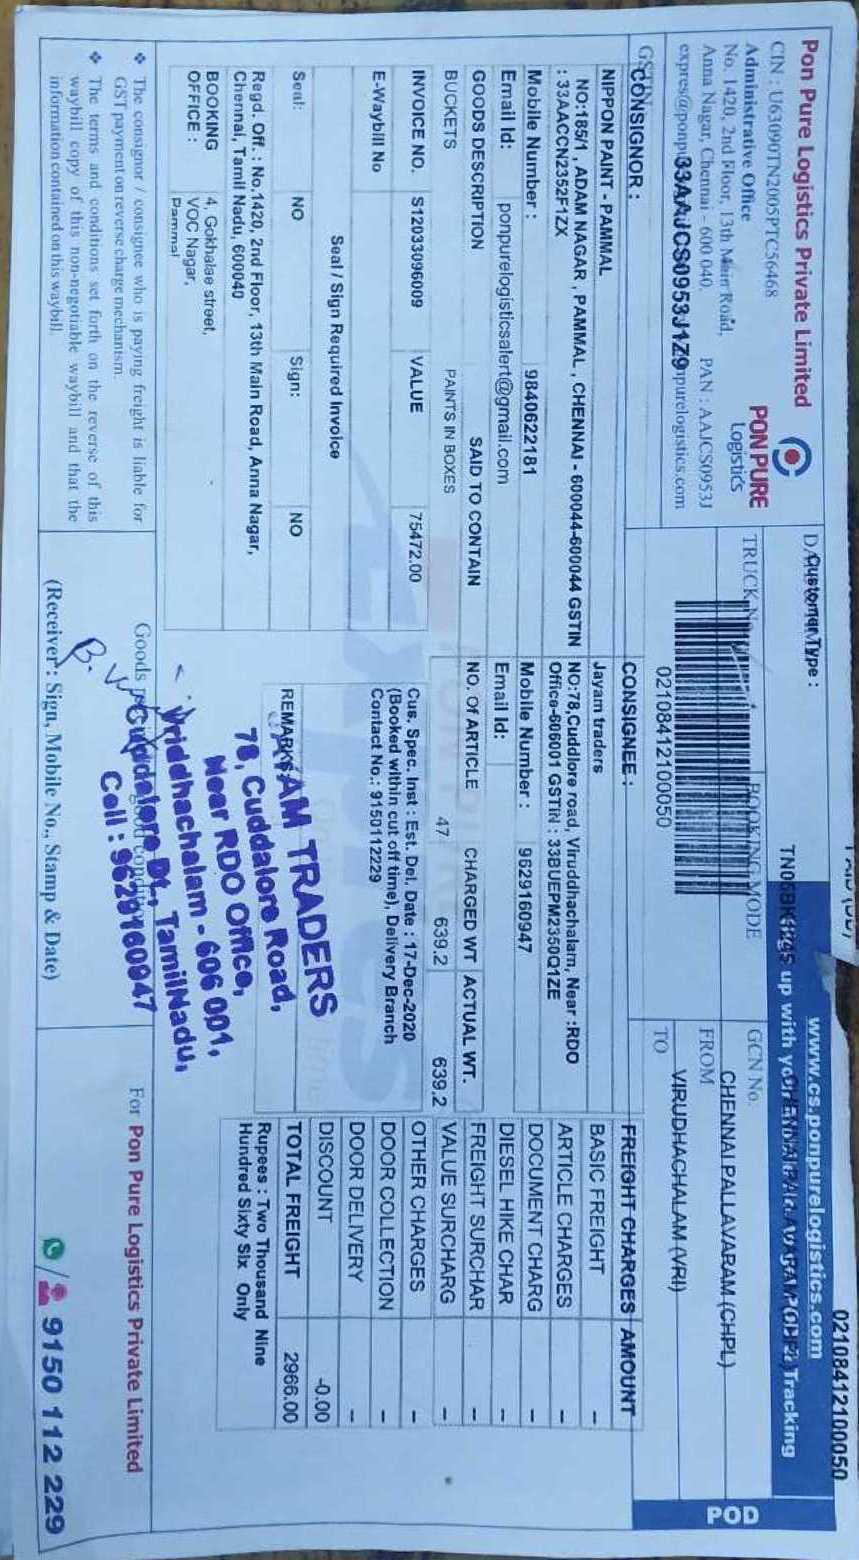 02108412100050
Pon Pure Logistics Private Limited
CIN : U63090TN2005PTC56468
Administrative Office
No. 1420, 2nd Floor, 13th Main Road,
Anna Nagar, Chennai - 600 040.
PAN : AAJCS0953J
PON PURE
Logistics
33AAJCS0953J1Z9
Customer Type :
TRUCK
BOOKING MODE
02108412100050
www.cs.ponpurelogistics.com
up with
Tracking
GCN No.
FROM
CHENNAI PALLAVARAM (CHPL)
TO
VIRUDHACHALAM (VRI)
POD
CONSIGNOR :
NIPPON PAINT - PAMMAL
NO:185/1 , ADAM NAGAR , PAMMAL , CHENNAI - 600044-600044 GSTIN
: 33AACCN2352F1ZX
Mobile Number : 9840622181
Email Id: ponpurelogisticsalert@gmail.com
CONSIGNEE :
Jayam traders
NO:78,Cuddlore road, Viruddhachalam, Near :RDO
Office-606001 GSTIN : 33BUEPM2350Q1ZE
Mobile Number : 9629160947
Email Id:
GOODS DESCRIPTION SAID TO CONTAIN NO. Of ARTICLE CHARGED WT ACTUAL WT.
BUCKETS PAINTS IN BOXES 47 639.2 639.2
INVOICE NO. S12033096009 VALUE 75472.00
E-Waybill No
Seal / Sign Required Invoice
Seal: NO Sign: NO
Cus. Spec. Inst : Est. Del. Date : 17-Dec-2020
(Booked within cut off time), Delivery Branch
Contact No.: 9150112229
REMARKS
FREIGHT CHARGES AMOUNT
BASIC FREIGHT -
ARTICLE CHARGES -
DOCUMENT CHARG -
DIESEL HIKE CHAR -
FREIGHT SURCHAR -
VALUE SURCHARG -
OTHER CHARGES -
DOOR COLLECTION -
DOOR DELIVERY -
DISCOUNT -0.00
TOTAL FREIGHT 2966.00
Rupees : Two Thousand Nine
Hundred Sixty Six Only
Regd. Off. : No.1420, 2nd Floor, 13th Main Road, Anna Nagar,
Chennai, Tamil Nadu, 600040
BOOKING OFFICE :
4, Gokhalae street,
VOC Nagar,
Pammal
JAYAM TRADERS
78, Cuddalore Road,
Near RDO Office,
Vriddhachalam - 606 001,
Cuddalore Dt., TamilNadu,
Cell : 9629160947
❖ The consignor / consignee who is paying freight is liable for
GST payment on reverse charge mechanism.
❖ The terms and conditions set forth on the reverse of this
waybill copy of this non-negotiable waybill and that the
information contained on this waybill.
Goods
good condition
(Receiver : Sign, Mobile No., Stamp & Date)
For Pon Pure Logistics Private Limited
9150 112 229